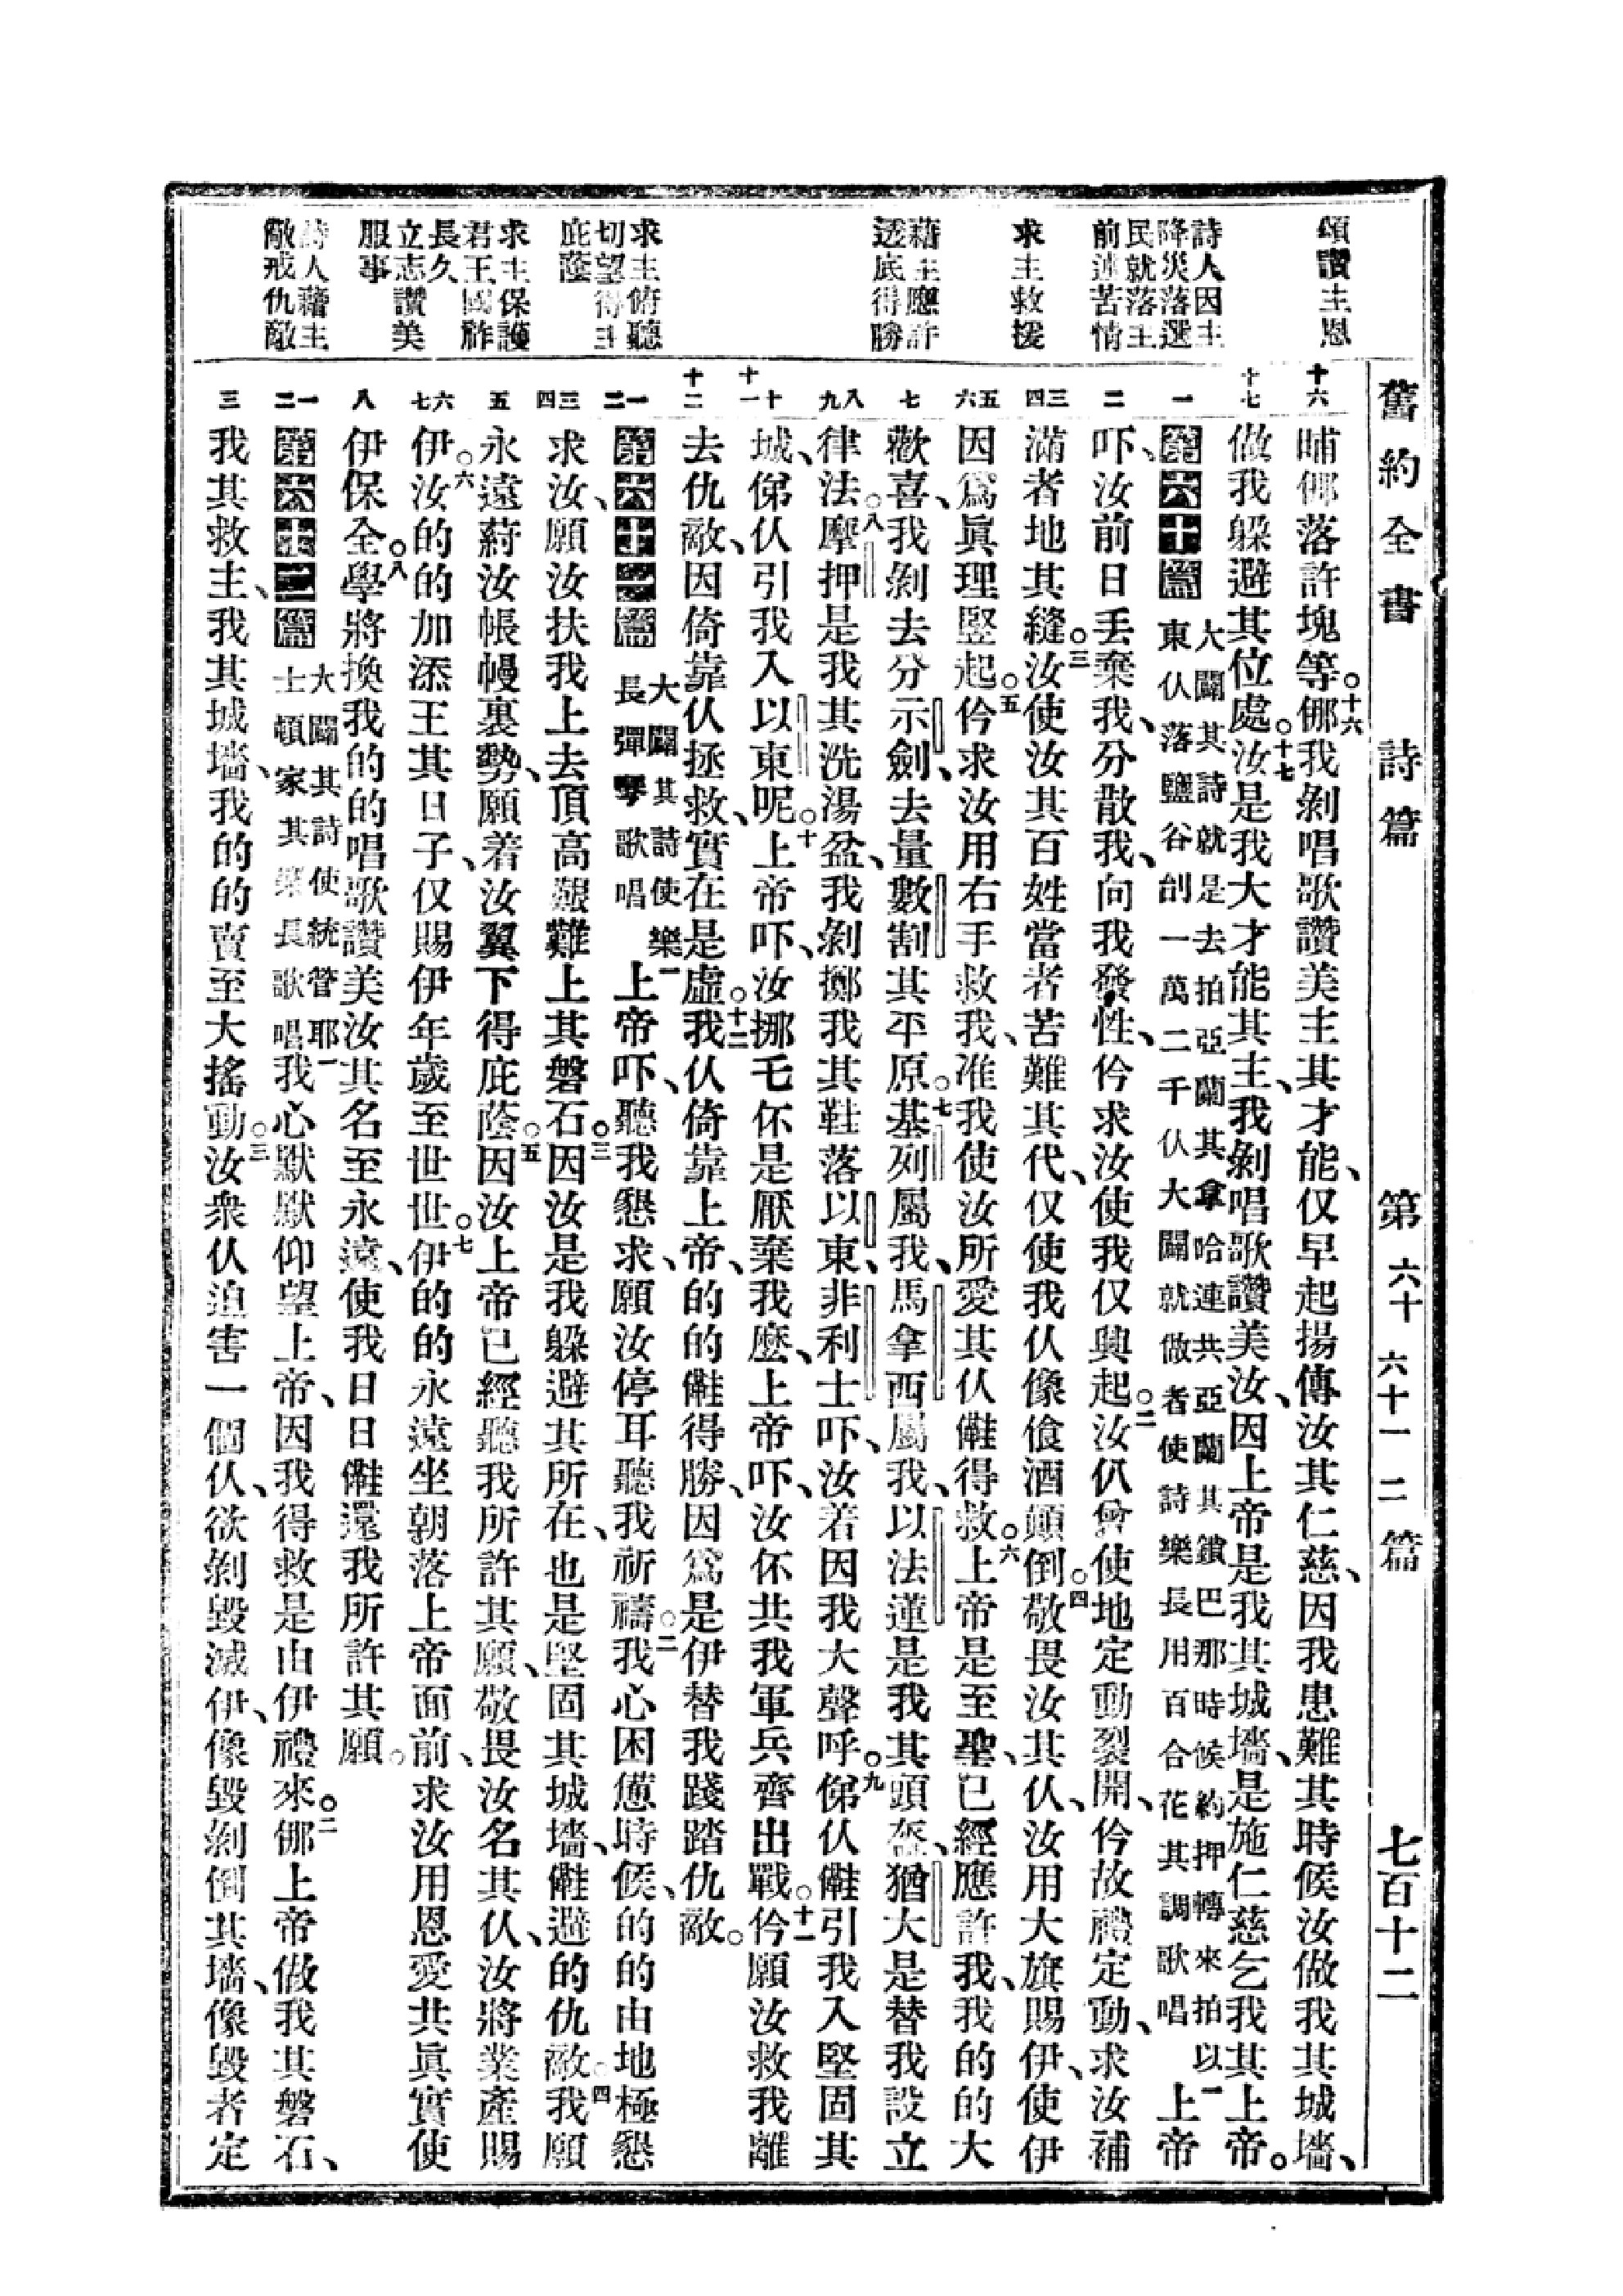 舊約全書　詩篇　第六十　六十一　二篇　七百十二
頌讚主恩
詩人因主
降災落選
民就落主
前述苦情
求主救援
藉主應許
透底得勝
求主俯聽
切望得主
庇蔭
求主保護
君王國祚
長久
立志讚美
服事
詩人藉主
敵戒仇敵
十六
十七
一
二
三四
五六
七
八九
十十一
十二
一二
三四
五
六七
八
一二
三
晡㑚落許塊等。十六㑚我剝唱歌讚美主其才能、仅早起揚傳汝其仁慈、因我患難其時候汝做我其城墻、
做我躲避其位處。十七汝是我大才能其主、我剝唱歌讚美汝、因上帝是我其城墻、是施仁慈乞我其上帝。
第六十篇　大闢其詩就是去拍亞蘭其拿哈連共亞蘭其鎖巴那時候約押轉來拍以
東仈落鹽谷刣一萬二千仈大闢就做者使詩樂長用百合花其調歌唱　一上帝
吓、汝前日丟棄我、分散我、向我發性、仱求汝使我仅興起。二汝仈曾使地定動裂開、仱故禮定動、求汝補
滿者地其縫。三汝使汝其百姓當者苦難其代、仅使我仈像飡酒顛倒。四敬畏汝其仈、汝用大旗賜伊、使伊
因爲眞理竪起。五仱求汝用右手救我、准我使汝所愛其仈㑲得救。六上帝是至聖、已經應許我、我的的大
歡喜、我剝去分示劍、去量數割其平原。七基列屬我、馬拿西屬我、以法蓮是我其頭盔、猶大是替我設立
律法。八摩押是我其洗湯盆、我剝擲我其鞋落以東、非利士吓、汝若因我大聲呼。九俤仈㑲引我入堅固其
城、俤仈引我入以東呢。十上帝吓、汝挪毛伓是厭棄我麽、上帝吓、汝伓共我軍兵齊出戰。十一仱願汝救我離
去仇敵、因倚靠仈拯救、實在是虛。十二我仈倚靠上帝、的的㑲得勝、因爲是伊替我踐踏仇敵。
第六十一篇　大闢其詩使樂
長彈琴歌唱　一上帝吓、聽我懇求、願汝停耳聽我祈禱。二我心困憊時候、的的由地極懇
求汝、願汝扶我上去頂高艱難上其磐石。三因汝是我躲避其所在、也是堅固其城墻、㑲避的仇敵。四我願
永遠蒞汝帳幔裏勢、願着汝翼下得庇蔭。五因汝上帝已經聽我所許其願、敬畏汝名其仈、汝將業產賜
伊。六汝的的加添王其日子、仅賜伊年歲至世世。七伊的的永遠坐朝落上帝面前、求汝用恩愛共眞實使
伊保全。八學將換我的的唱歌讚美汝其名至永遠、使我日日㑲還我所許其願。
第六十二篇　大闢其詩使統管耶
士頓家其樂長歌唱　一我心默默仰望上帝、因我得救是由伊禮來。二㑚上帝做我其磐石、
我其救主、我其城墻、我的的賣至大搖動。三汝衆仈迫害一個仈、欲剝毀滅伊、像毀剝倒其墻、像毀者定